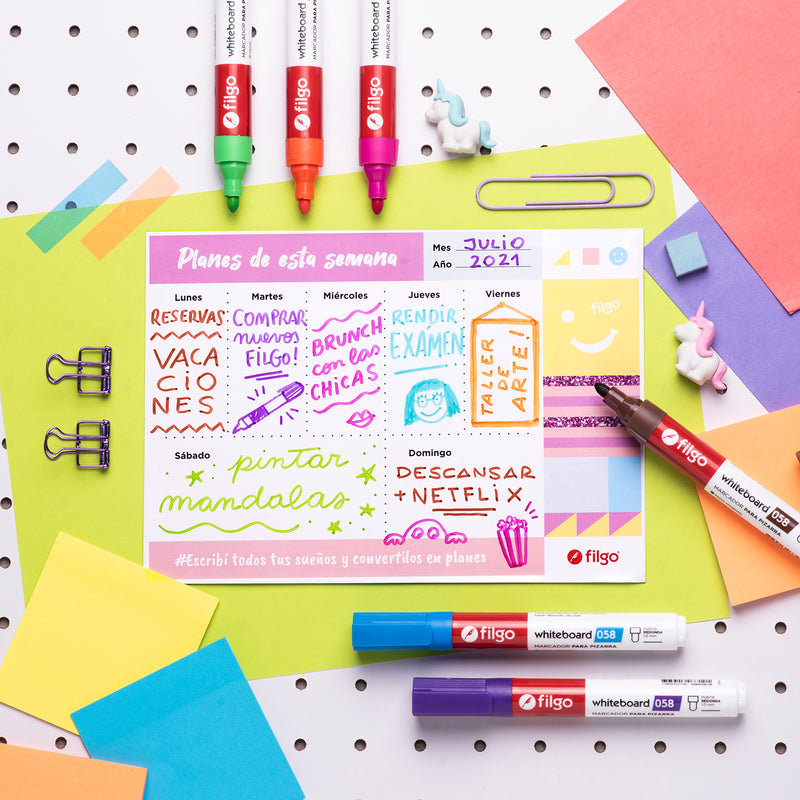 whiteboard
MARCADOR PARA PI
filgo
whiteboard
MARCADOR PARA PI
filgo
whiteboard
MARCADOR PARA PI
filgo
Planes de esta semana
Mes JULIO
Año 2021
Lunes
RESERVAS
VACA
CIO
NES
Martes
COMPRAR
nuevos
FILGO!
Miércoles
BRUNCH
con las
CHICAS
Jueves
RENDIR
EXÁMEN
Viernes
TALLER
DE
ARTE!
filgo
Sábado
pintar
mandalas
Domingo
DESCANSAR
+ NETFLIX
#Escribí todos tus sueños y convertilos en planes
filgo
filgo
whiteboard 058
MARCADOR PARA PIZARRA
filgo
whiteboard 058
MARCADOR PARA PIZARRA
PUNTA
REDONDA
filgo
whiteboard 058
MARCADOR PARA PIZARRA
PUNTA
REDONDA